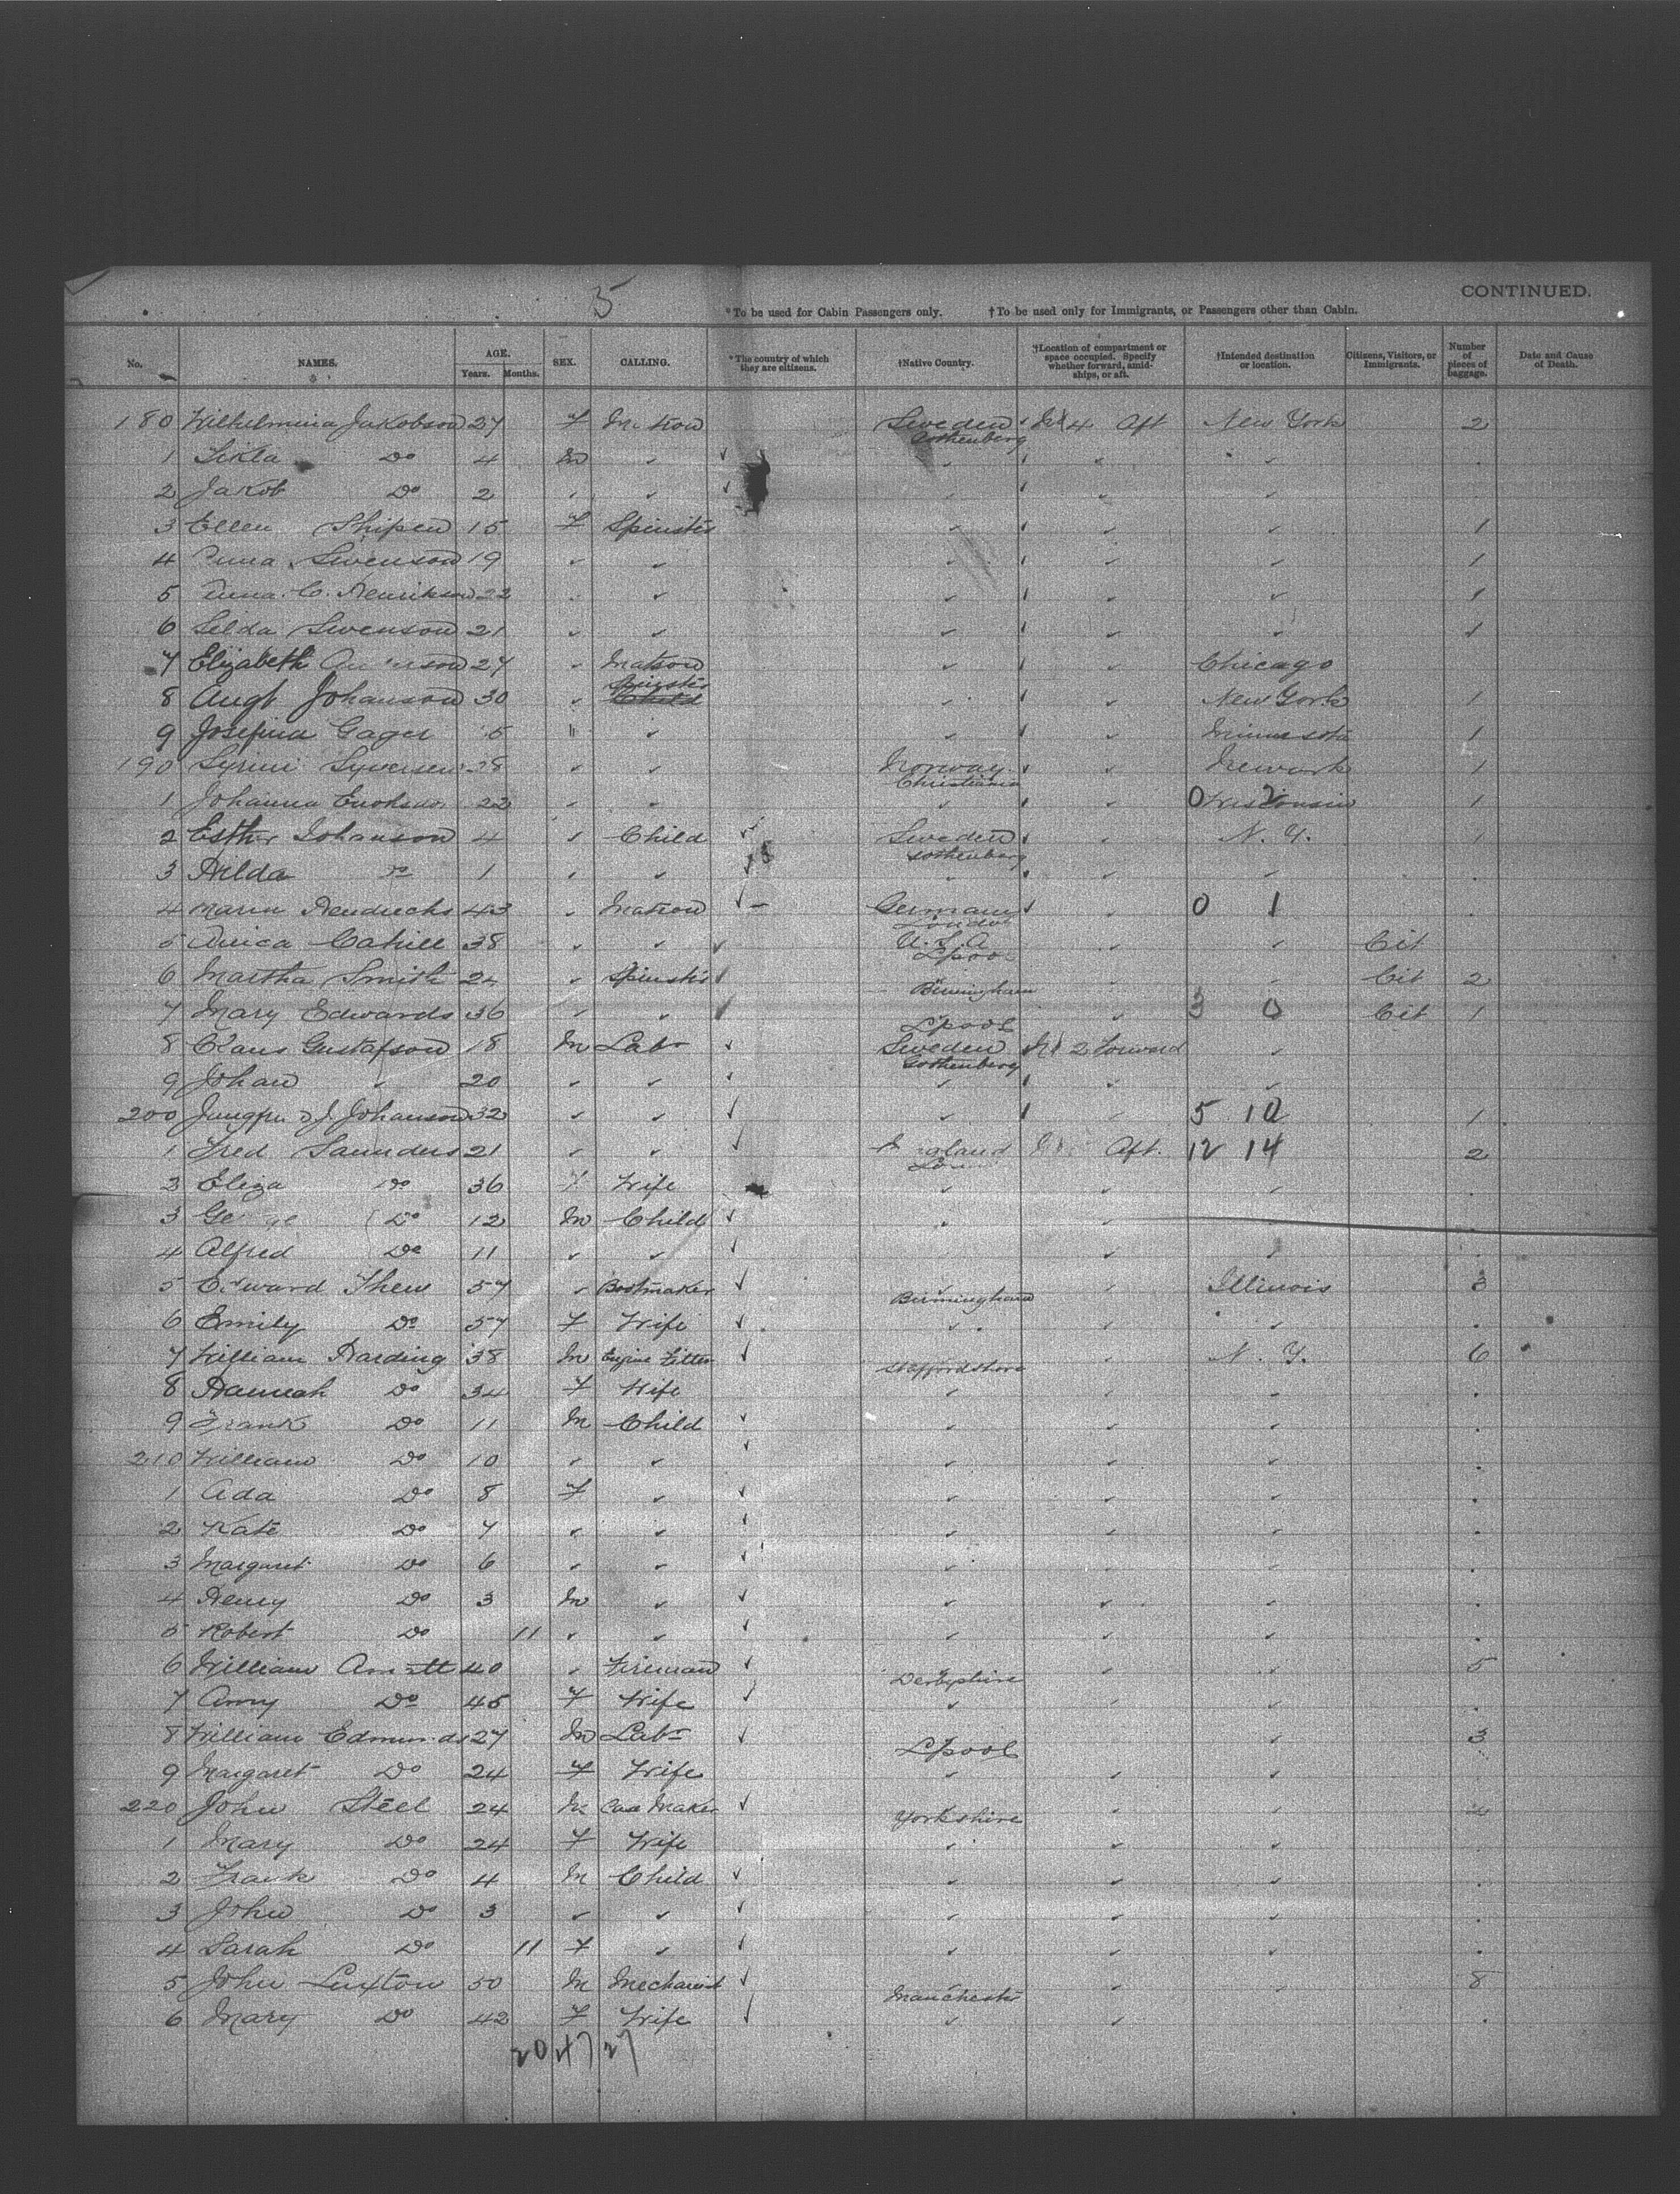 5
CONTINUED.
*To be used for Cabin Passengers only. †To be used only for Immigrants, or Passengers other than Cabin.
No. NAMES. AGE. Years. Months. SEX. CALLING. *The country of which they are citizens. †Native Country. †Location of compartment or space occupied. Specify whether forward, amidships, or aft. †Intended destination or location. Citizens, Visitors, or Immigrants. Number of pieces of baggage. Date and Cause of Death.
180 Wilhelmina Jakobson 27 F Matron Sweden Gothenberg No 4 Aft New York 2
1 Do 4 M ✓ ✓ ✓ ✓ ✓
2 Jakob Do 2 ✓ ✓ ✓ ✓ ✓ ✓
3 Ellen Shipen 15 F Spinster ✓ ✓ ✓ 1
4 Swenson 19 ✓ ✓ ✓ ✓ ✓ 1
5 Anna C. Henrikson 22 ✓ ✓ ✓ ✓ 1
6 Selda Swenson 21 ✓ ✓ ✓ ✓ ✓ 1
7 Elizabeth 27 ✓ Matron ✓ ✓ Chicago
8 Augt Johanson 30 ✓ Spinster Child ✓ ✓ New York 1
9 Josefina Gager ✓ ✓ ✓ Minnesota 1
190 Syversen 28 ✓ ✓ Norway Christiania ✓ Newark 1
1 Johanna 22 ✓ ✓ ✓ ✓ 0 2 Wisconsin 1
2 Esther Johanson 4 ✓ Child ✓ Sweden Gothenberg ✓ N. Y. 1
3 Hilda Do 1 ✓ ✓ ✓ ✓ ✓ ✓
4 Maria Hendrichs 43 ✓ Matron ✓ Germany London 0 1
5 Cahill 38 ✓ ✓ ✓ U.S.A Lpool ✓ ✓ Cit
6 Martha Smith 24 ✓ Spinster ✓ Birmingham ✓ ✓ Cit 2
7 Mary Edwards 36 ✓ ✓ ✓ Lpool ✓ 3 0 Cit 1
8 Claus Gustafson 18 M Labr ✓ Sweden Gothenberg No 2 Forward ✓
9 Johan ✓ 20 ✓ ✓ ✓ ✓ ✓ ✓
200 J. Johanson 32 ✓ ✓ ✓ ✓ ✓ 5 10 1
1 Fred Saunders 21 ✓ ✓ ✓ England Aft. 12 14 2
2 Eliza Do 36 F Wife ✓ ✓ ✓
3 George Do 12 M Child ✓ ✓
4 Alfred Do 11 ✓ ✓ ✓ ✓ ✓
5 Edward Thew 57 ✓ Bootmaker ✓ Birmingham ✓ Illinois 3
6 Emily Do 57 F Wife ✓ ✓ ✓ ✓
7 William Harding 38 M Engine Fitter ✓ Staffordshire ✓ N. Y. 6
8 Hannah Do 34 F Wife ✓ ✓ ✓
9 Frank Do 11 M Child ✓ ✓ ✓ ✓
210 William Do 10 ✓ ✓ ✓ ✓ ✓ ✓
1 Ada Do 8 F ✓ ✓ ✓ ✓ ✓
2 Kate Do 7 ✓ ✓ ✓ ✓ ✓ ✓
3 Margaret Do 6 ✓ ✓ ✓ ✓ ✓ ✓
4 Henry Do 3 M ✓ ✓ ✓ ✓ ✓
5 Robert Do 11 ✓ ✓ ✓ ✓ ✓ ✓
6 William 40 ✓ Fireman ✓ Derbyshire ✓ ✓ 5
7 Amy Do 45 F Wife ✓ ✓ ✓ ✓
8 William Edmunds 27 M Labr ✓ Lpool ✓ 3
9 Margaret Do 24 F Wife ✓ ✓ ✓
220 John Steel 24 M Maker ✓ Yorkshire ✓ ✓
1 Mary Do 24 F Wife ✓ ✓ ✓
2 Frank Do 4 M Child ✓ ✓ ✓ ✓
3 John Do 3 ✓ ✓ ✓ ✓ ✓ ✓
4 Sarah Do 11 F ✓ ✓ ✓ ✓ ✓
5 John Luxton 50 M Mechanist ✓ Manchester ✓ ✓ 8
6 Mary Do 42 F Wife ✓ ✓ ✓
20 47 27